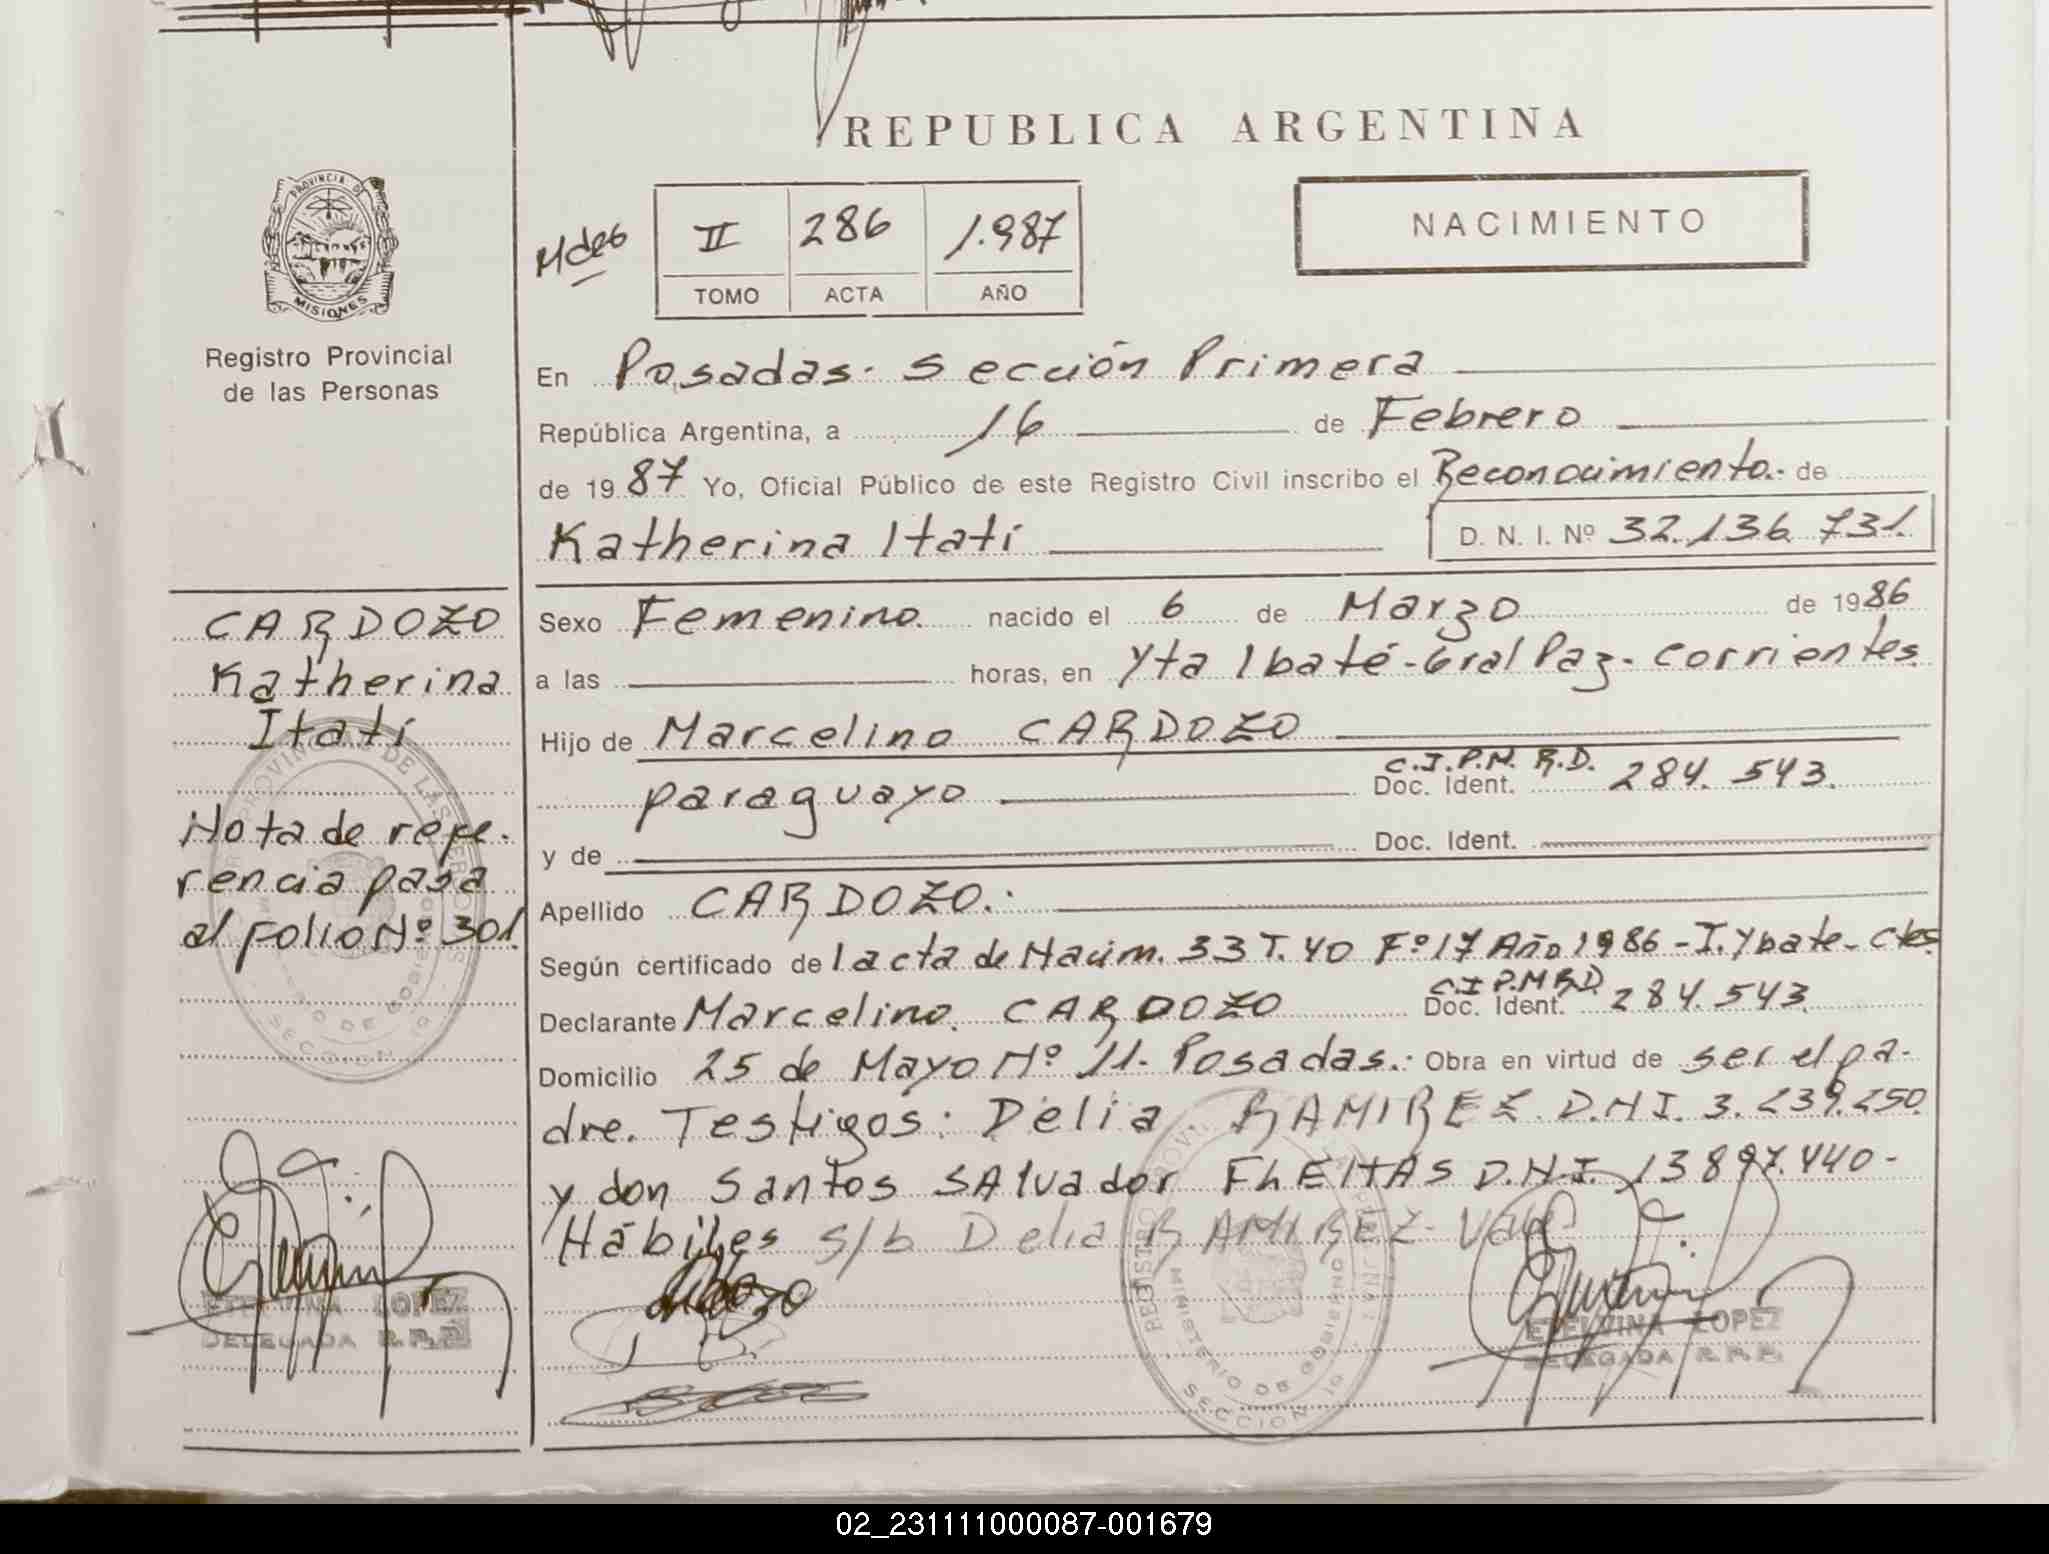 REPUBLICA ARGENTINA
NACIMIENTO
Mdes
II 286 1.987
TOMO ACTA AÑO
PROVINCIA DE
MISIONES
Registro Provincial
de las Personas
En Posadas. Sección Primera
República Argentina, a 16 de Febrero
de 1987 Yo, Oficial Público de este Registro Civil inscribo el Reconocimiento. de
Katherina Itatí D. N. I. Nº 32.136.731.
Sexo Femenino. nacido el 6 de Marzo de 1986
a las horas, en Yta Ibaté-Gral Paz-Corrientes
Hijo de Marcelino CARDOZO
C.I.P.M. R.D.
paraguayo Doc. Ident. 284.543.
y de Doc. Ident.
Apellido CARDOZO.
Según certificado de lacta de Nacim. 33 T.40 Fº17 Año 1986-I.Ybate-Ctes
C.I P.M R.D.
Declarante Marcelino CARDOZO Doc. Ident. 284.543.
Domicilio 25 de Mayo Nº 11-Posadas. Obra en virtud de ser el pa-
dre. Testigos: Delia RAMIREZ D.N.I. 3.239.250.
y don Santos SAlvador FLEITAS D.N.I. 13897.440-
Hábiles s/b Delia RAMIREZ-Vale
ETELVINA LOPEZ
DELEGADA R.P.P.
CARDOZO
Katherina
Itatí
Nota de refe-
rencia pasa
al Folio Nº 301.
ETELVINA LOPEZ
DELEGADA R.P.P.
02_231111000087-001679